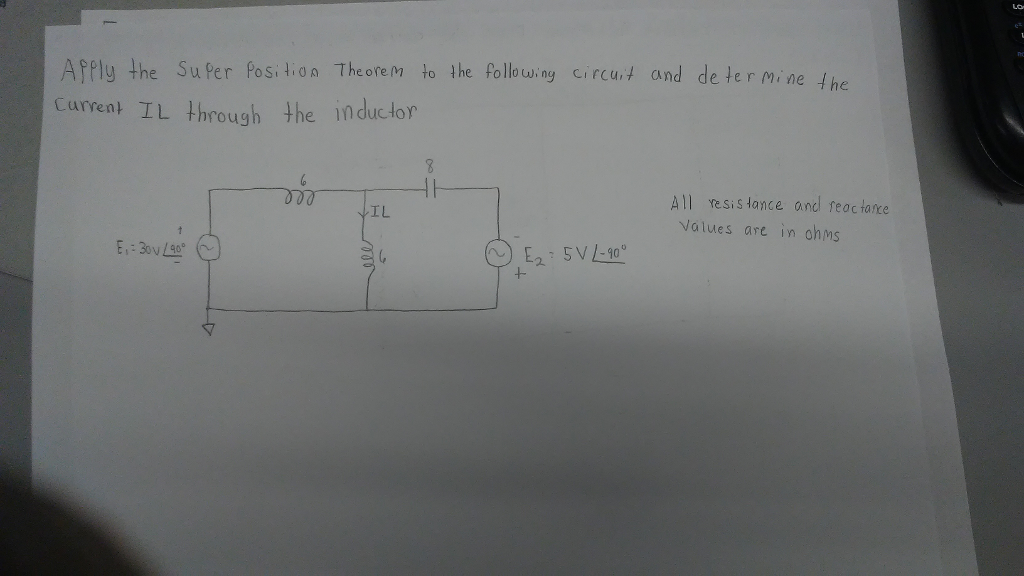 Apply the Super Position Theorem to the following circuit and determine the
Current IL through the inductor
8
6
IL
All resistance and reactance
Values are in ohms
+
E₁ = 30V∠90°
-
6
-
E₂ = 5V∠-90°
+